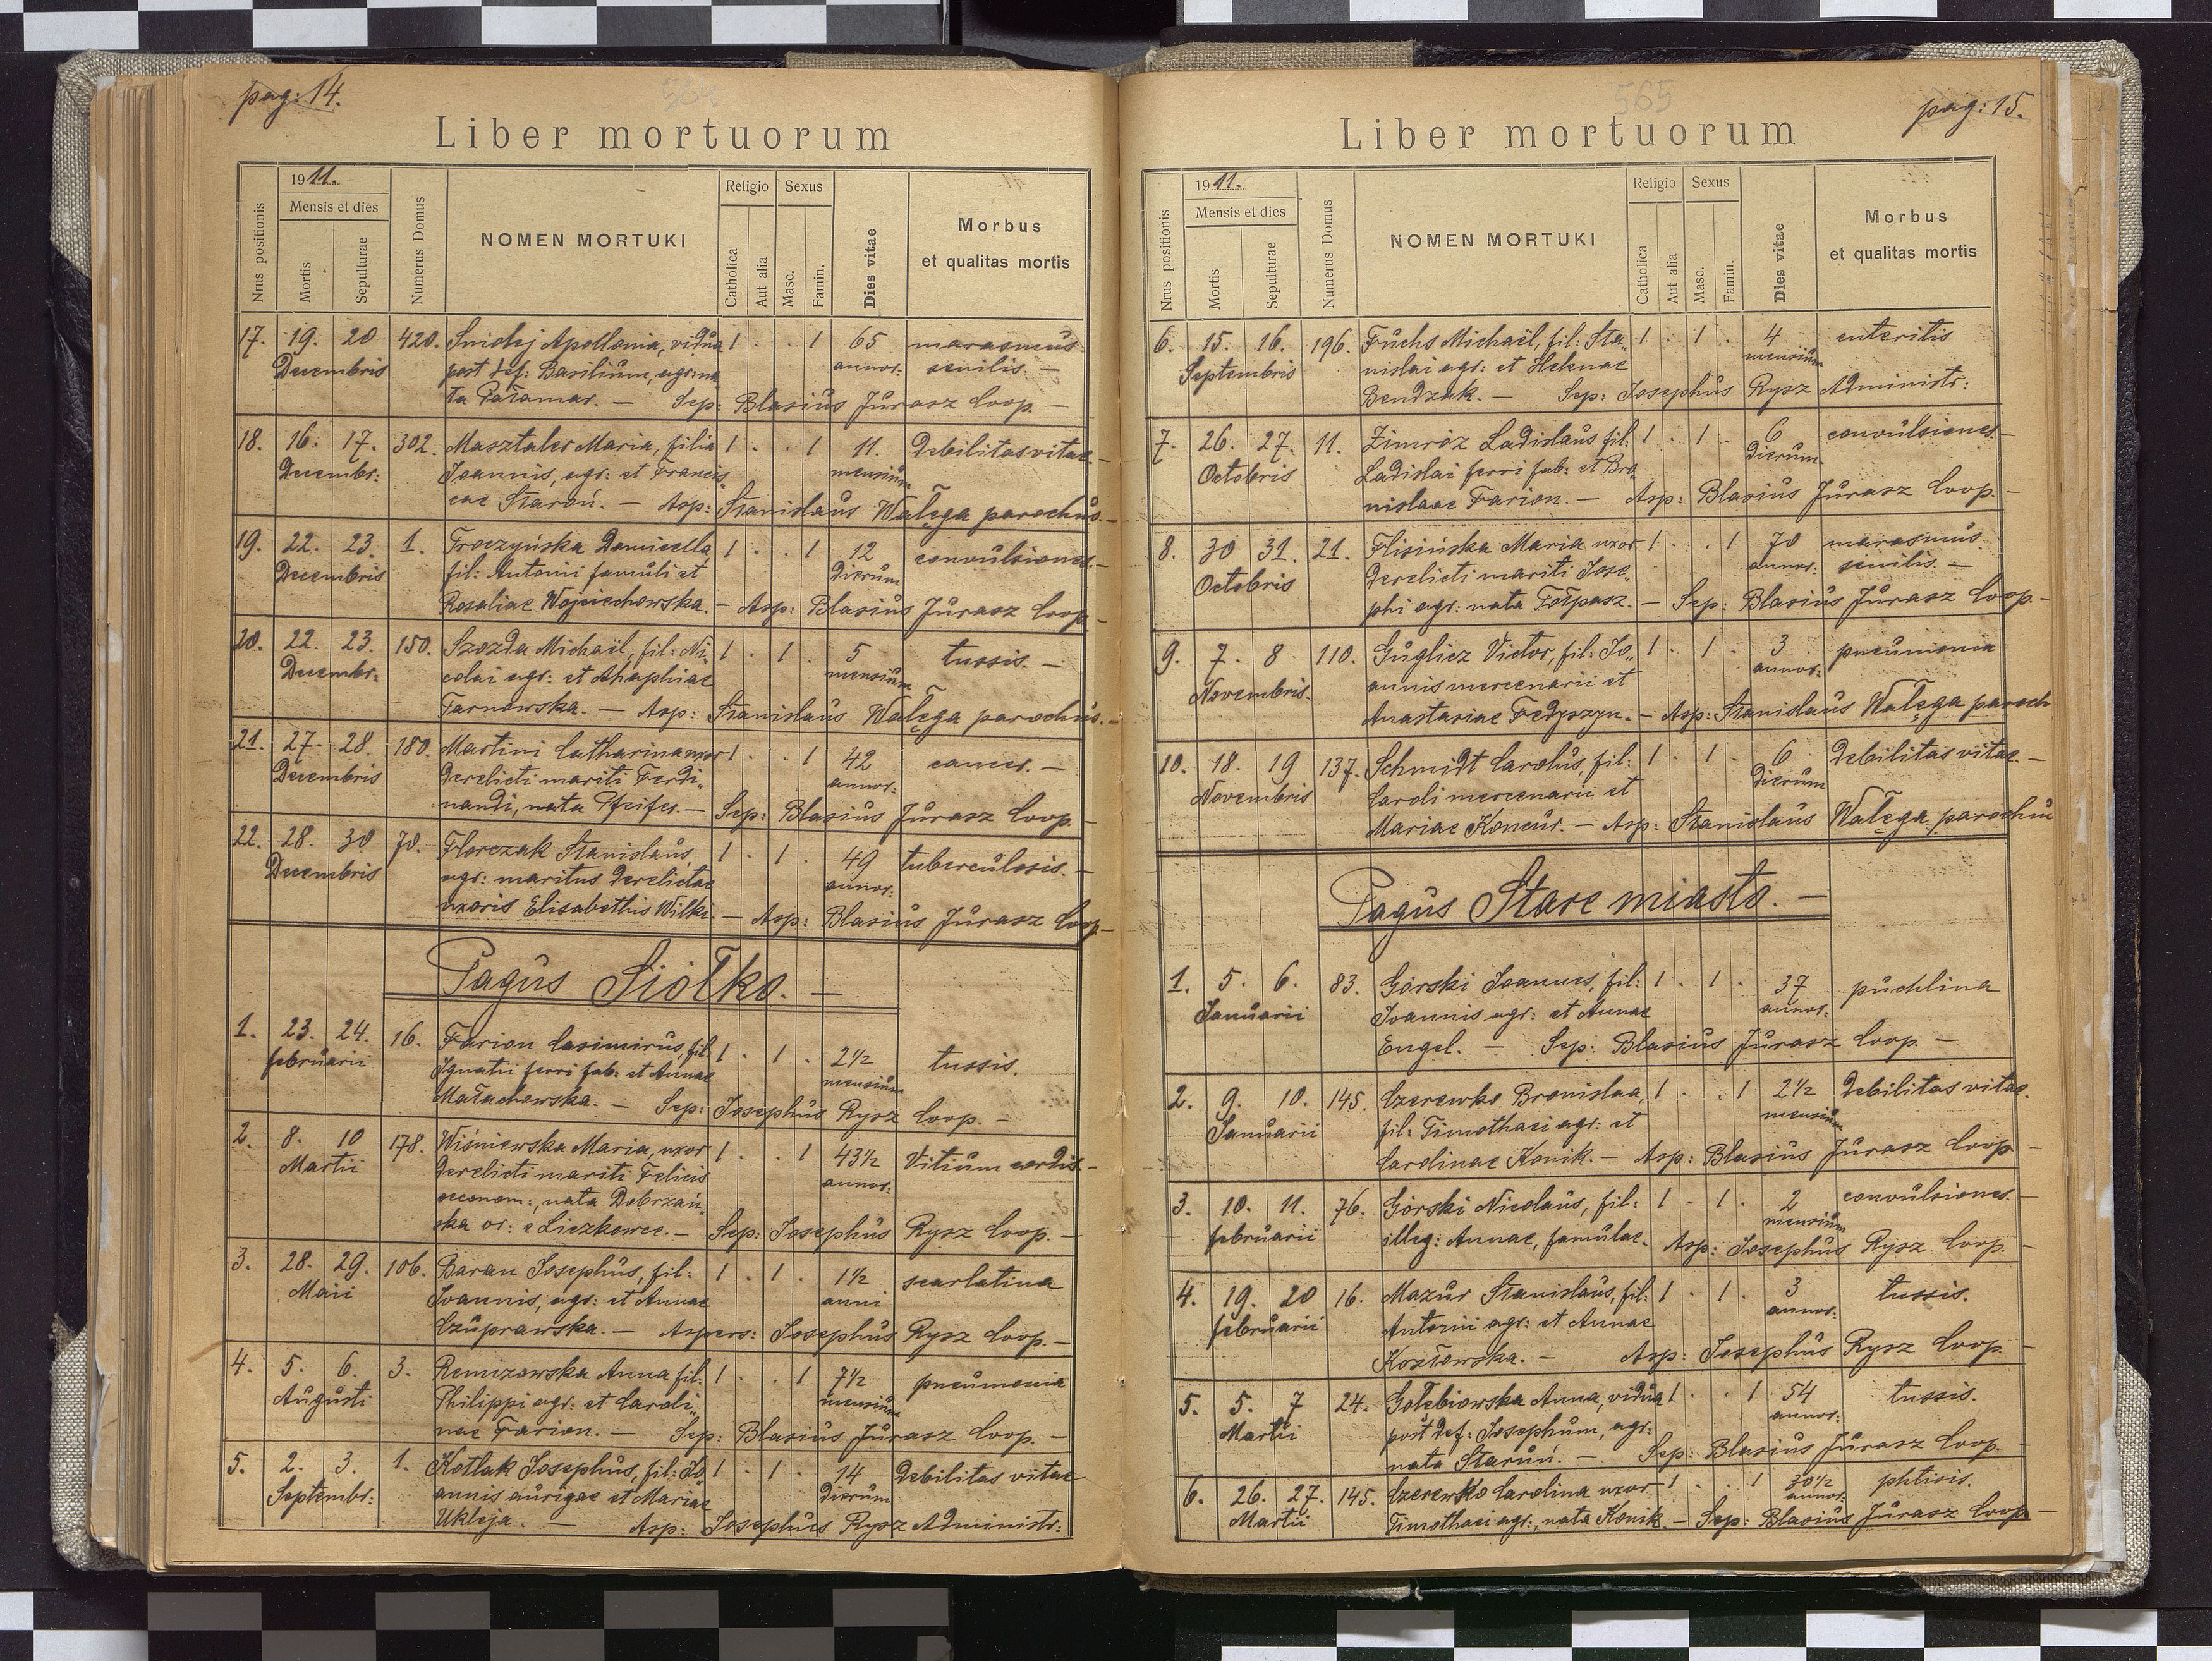 pag: 14.
Liber mortuorum
Nrus positionis
1911.
Mensis et dies
Mortis
Sepulturae
Numerus Domus
NOMEN MORTUKI
Religio
Sexus
Catholica
Aut alia
Masc.
Famin.
Dies vitae
Morbus
et qualitas mortis
17. 19. 20 420. Śnichej Apollonia, vidua 1 . . 1 65 marasmus
Decembris post def: Basilium, agr: na annor: senilis. —
ta Paramar. — Sep: Blasius Jurasz Coop. —
18. 16. 17. 302. Masztaler Maria, filia 1 . . 1 11. Debilitas vitae —
Decembr: Joannis, agr: et Francis„ mensium
cae Staroń. — Asp: Stanislaus Wałęga parochus. —
19. 22. 23. 1. Troczyńska Domicella 1 . . 1 12 convulsiones. —
Decembris fil: Antonii famuli et dierum
Rosaliae Wojciechowska. — Asp: Blasius Jurasz Coop. —
20. 22. 23. 150. Szozda Michaël, fil: Ni„ 1 . 1 . 5 tussis. —
Decembr: colai agr: et Ahaphiae mensium
Tarnowska. — Asp: Stanislaus Wałęga parochus. —
21. 27. 28. 180. Martini Catharina uxor 1 . . 1 42 cancer. —
Decembris derelicti mariti Ferdi„ annor:
nandi, nata Pfeifer. — Sep: Blasius Jurasz Coop. —
22. 28. 30 70. Florczak Stanislaus, 1 . 1 . 49 tuberculosis. —
Decembris agr: maritus derelictae annor:
uxoris Elisabethis Wilk. — Asp: Blasius Jurasz Coop —
Pagus Siółko. —
1. 23. 24. 16. Farion Casimirus, fil. 1 . 1 . 2½ tussis.
februarii Ignatii ferri fab: et Annae mensium
Małachowska. — Sep: Josephus Rysz Coop. —
2. 8. 10 178. Wiśniewska Maria, uxor 1 . . 1 43½ Vitium cordis. —
Martii derelicti mariti Felicis annor:
oeconom:, nata Dobrzań„
ska or: e Liczkowce. — Sep: Josephus Rysz Coop. —
3. 28. 29. 106. Baran Josephus, fil: 1 . 1 . 1½ scarlatina
Maii Joannis, agr: et Annae anni
Czuprawska. — Aspers: Josephus Rysz Coop. —
4. 5. 6. 3. Remizowska Anna fil: 1 . . 1 7½ pneumonia
Augusti Philippi agr: et Caroli„ mensium
nae Farion. — Sep: Blasius Jurasz Coop. —
5. 2. 3. 1. Kotlak Josephus, fil: Jo 1 . 1 . 14 Debilitas vitae
Septembr: annis aurigae et Mariae dierum
Ukleja. — Asp: Josephus Rysz Administr:
565
pag: 15.
Liber mortuorum
Nrus positionis
1911.
Mensis et dies
Mortis
Sepulturae
Numerus Domus
NOMEN MORTUKI
Religio
Sexus
Catholica
Aut alia
Masc.
Famin.
Dies vitae
Morbus
et qualitas mortis
6. 15. 16. 196. Fuchs Michaël, fil: Sta„ 1 . 1 . 4 enteritis
Septembris nislai agr: et Helenae mensium
Bendzak. — Sep: Josephus Rysz Administr:
7. 26. 27. 11. Zimróz Ladislaus fil: 1 . 1 . 6 convulsiones. —
Octobris Ladislai ferri fab: et Bro dierum.
nislaae Farion. — Asp: Blasius Jurasz Coop. —
8. 30 31. 21. Flisińska Maria uxor 1 . . 1 70 marasmus
Octobris derelicti mariti Jose„ annor: senilis. —
phi agr: nata Torpasz. — Sep: Blasius Jurasz Coop. —
9. 7. 8 110. Guglicz Victor, fil: Jo„ 1 . 1 . 3 pneumonia
Novembris. annis mercenarii et annor:
Anastasiae Fedyszyn. — Asp: Stanislaus Wałęga paroch
10. 18. 19 137. Schmidt Carolus, fil: 1 . 1 . 6 Debilitas vitae. —
Novembris Caroli mercenarii et dierum
Mariae Koncur. — Asp: Stanislaus Wałęga parochu
Pagus Stare miasto. —
1. 5. 6. 83. Górski Joannes, fil: 1 . 1 . 37 puchlina
Januarii Joannis agr: et Annae annor:
Engel. — Sep: Blasius Jurasz Coop. —
2. 9. 10. 145. Czerewko Bronislaa, 1 . . 1 2½ Debilitas vitae.
Januarii fil: Timothaei agr: et mensium
Carolinae Konik. — Asp: Blasius Jurasz Coop —
3. 10. 11. 76. Górski Nicolaus, fil: 1 . 1 . 2 convulsiones. —
februarii illeg: Annae, famulae. mensium
Asp: Josephus Rysz Coop. —
4. 19. 20 16. Mazur Stanislaus, fil: 1 . 1 . 3 tussis.
februarii Antonii agr: et Annae annor:
Kozłowska. — Asp: Josephus Rysz Coop. —
5. 5. 7 24. Gołębiowska Anna, vidua 1 . . 1 54 tussis.
Martii post def: Josephum, agr: annor:
nata Staruń. — Sep: Blasius Jurasz Coop. —
6. 26. 27. 145. Czerewko Carolina uxor 1 . . 1 30½ phtisis.
Martii Timothaei agr:, nata Konik. — Sep: Blasius Jurasz Coop —